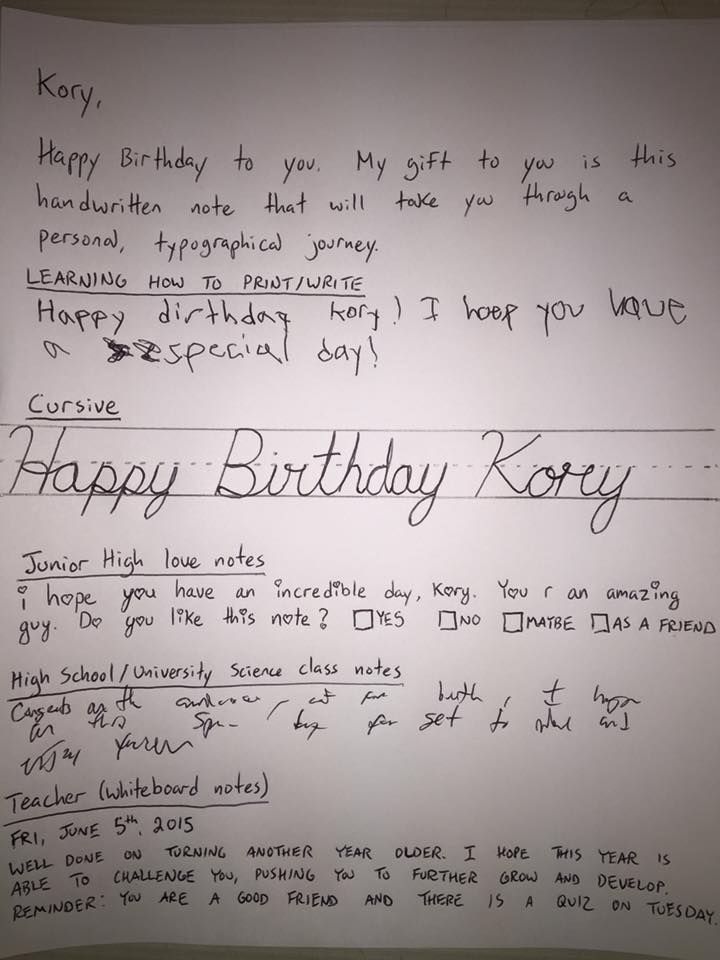 Kory,
Happy Birthday to you. My gift to you is this
handwritten note that will take you through a
personal, typographical journey.
LEARNING HOW TO PRINT/WRITE
Happy dirthday Kory! I hoep you have
a special day!
Cursive
Happy Birthday Korey
Junior High love notes
i hope you have an incredible day, Kory. You r an amazing
guy. Do you like this note? YES NO MAYBE AS A FRIEND
High School/University Science class notes
set to
Teacher (whiteboard notes)
FRI, JUNE 5th, 2015
WELL DONE ON TURNING ANOTHER YEAR OLDER. I HOPE THIS YEAR IS
ABLE TO CHALLENGE YOU, PUSHING YOU TO FURTHER GROW AND DEVELOP.
REMINDER: YOU ARE A GOOD FRIEND AND THERE IS A QUIZ ON TUESDAY.